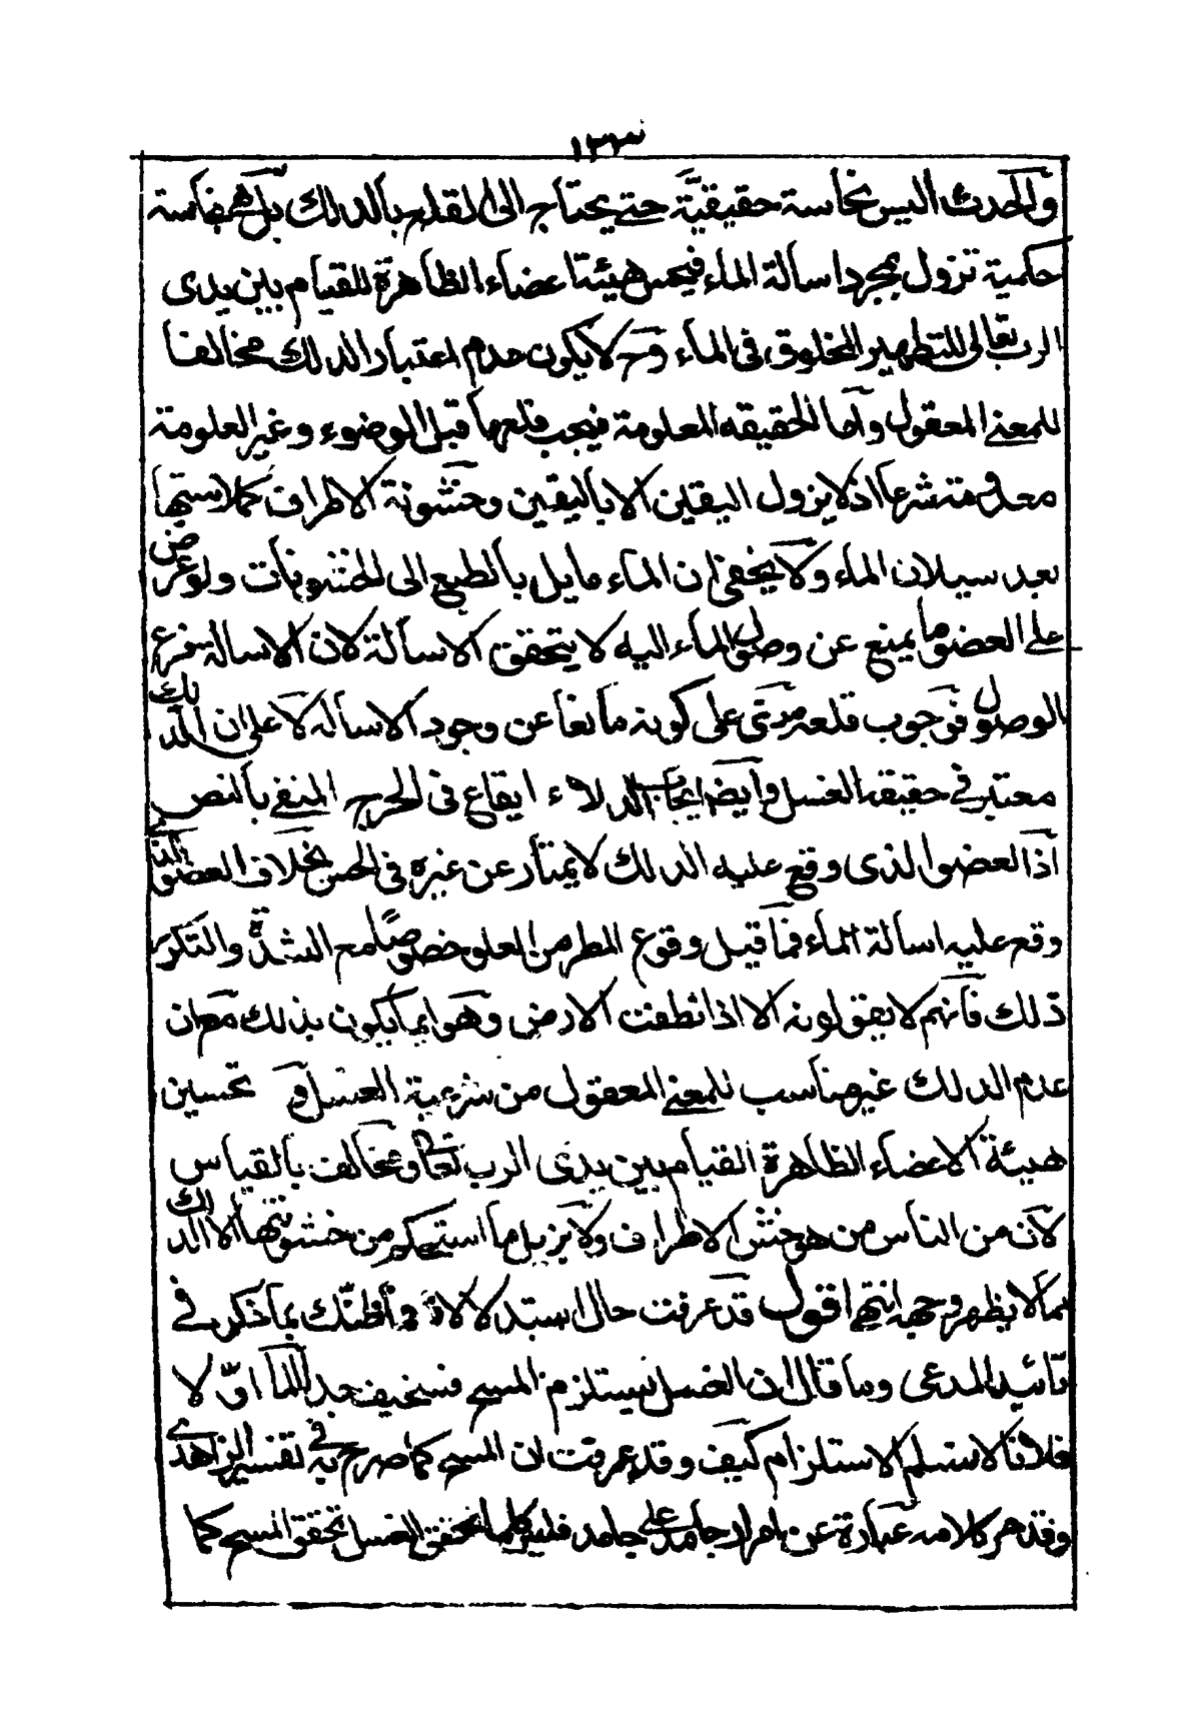 ١٢٣
والحدث اليس نجاسة حقيقيّة حتى يحتاج الى القلع بالدلك بل هى نجاسة
حكمية تزول بمجرد اسالة الماء فيحسن هيئة اعضاء الظاهرة للقيام بين يدى
الرب تعالى للتطهير المخلوق فى الماء وح لا يكون عدم اعتبار الدلك مخالفا
للمعنى المعقول واما الحقيقه المعلومة فيجب قلعها قبل الوضوء وغير العلومة
معدومة شرعا اذ لا يزول اليقين الا باليقين وخشونة الاطراف كملاستها
بعد سيلان الماء ولا يخفى ان الماء مايل بالطبع الى الخشونات ولو عرض
على العضو ما يمنع عن وصول الماء اليه لا يتحقق الاسالة لان الاسالة يتفرع
الوصول فوجوب قلعه مرتى على كونه مانعا عن وجود الاسالة لا على ان الدلك
معتبر فى حقيقه الغسل وايضا ايجاب الدلاء ايقاع فى الحرج المنفى بالنص
اذ العضو الذى وقع عليه الدلك لا يمتاز عن غيره فى الحس بخلاف العضو الذى
وقع عليه اسالة الماء فما قيل وقوع المطر من العلو خصوصًا مع الشدّة والتكرر
ذلك فانهم لا يقولونه الا اذا نظفت الارض وهو انما يكون بذلك مع ان
عدم الدلك غير مناسب للمعنى المعقول من شرعية الغسل و تحسين
هيئة الاعضاء الظاهرة القيام بين يدى الرب تعالى ومخالف بالقياس
لان من الناس من هو خشن الاطراف ولا يزيل ما استحكم من خشونتها الا الدلك
مما لا يظهر وجهه انتهى اقول قد عرفت حال استبدلالاة وأظنّك بما ذكر فى
تائيد المدعى وما قال ان الغسل يستلزم المسح فسخيف جدا اما اوّلا
فلانا لا نسلم الاستلزام كيف وقد عرفت ان المسح كما صرح به فى تفسير الزاهدى
وقد مر كلامه عبارة عن امرار جامد على جامد فليس كلما تحقق الغسل تحقق المسح كما